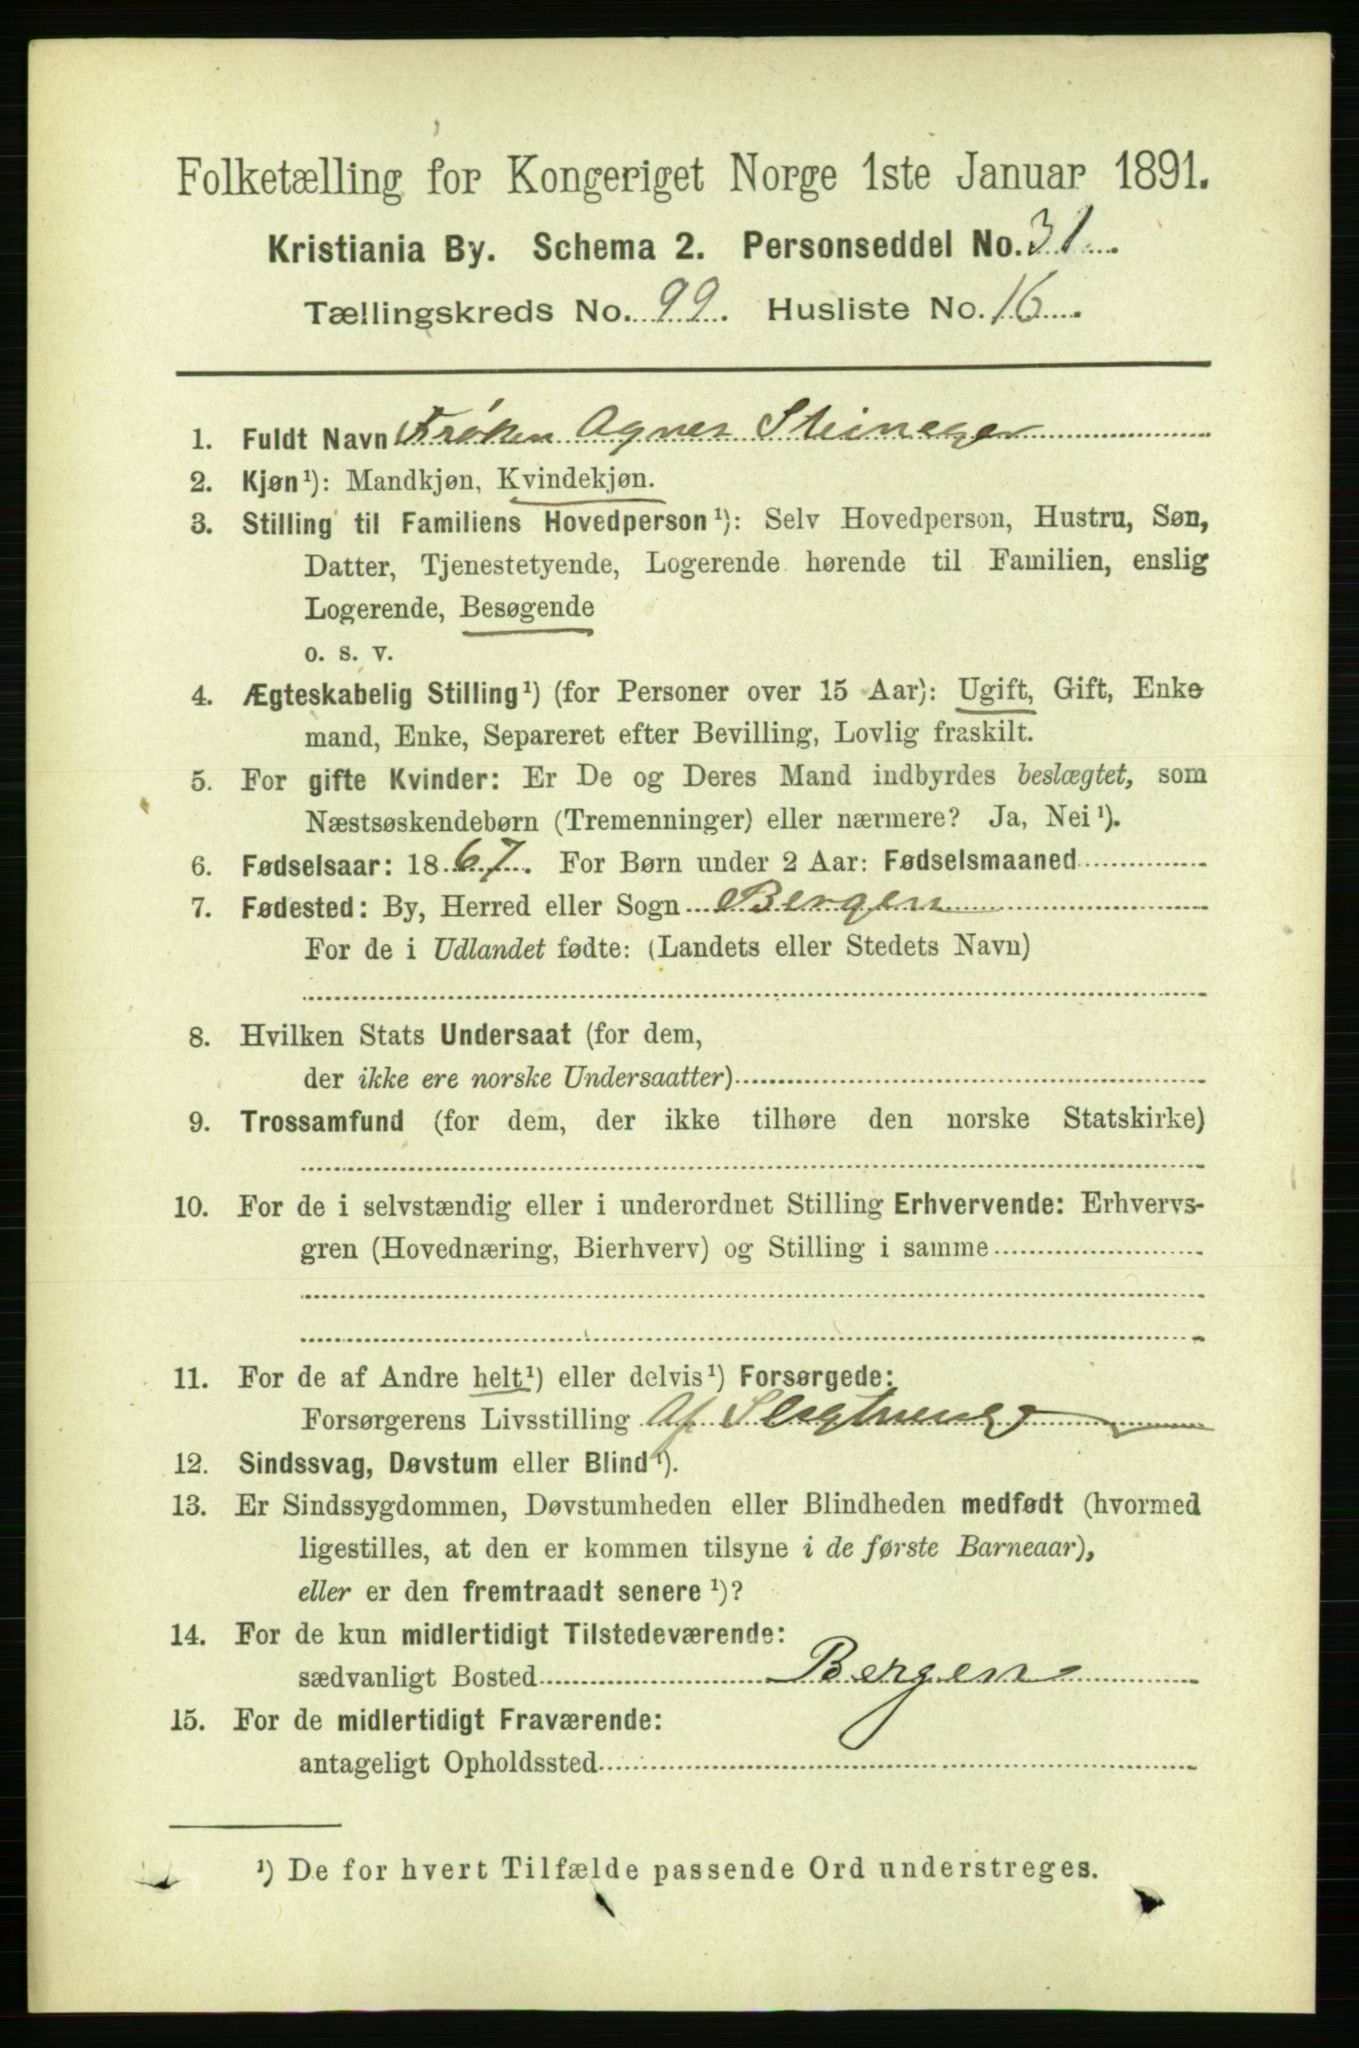 Folketælling for Kongeriget Norge 1ste Januar 1891.
Kristiania By. Schema 2. Personseddel No. 31.
Tællingskreds No. 99. Husliste No. 16.
1. Fuldt Navn Frøken Agnes Steineger
2. Kjøn¹): Mandkjøn, Kvindekjøn.
3. Stilling til Familiens Hovedperson¹): Selv Hovedperson, Hustru, Søn,
Datter, Tjenestetyende, Logerende hørende til Familien, enslig
Logerende, Besøgende
o. s. v.
4. Ægteskabelig Stilling¹) (for Personer over 15 Aar): Ugift, Gift, Enke
mand, Enke, Separeret efter Bevilling, Lovlig fraskilt.
5. For gifte Kvinder: Er De og Deres Mand indbyrdes beslægtet, som
Næstsøskendebørn (Tremenninger) eller nærmere? Ja, Nei¹).
6. Fødselsaar: 1867. For Børn under 2 Aar: Fødselsmaaned
7. Fødested: By, Herred eller Sogn Bergen
For de i Udlandet fødte: (Landets eller Stedets Navn)
8. Hvilken Stats Undersaat (for dem,
der ikke ere norske Undersaatter)
9. Trossamfund (for dem, der ikke tilhøre den norske Statskirke)
10. For de i selvstændig eller i underordnet Stilling Erhvervende: Erhvervs-
gren (Hovednæring, Bierhverv) og Stilling i samme
11. For de af Andre helt¹) eller delvis¹) Forsørgede:
Forsørgerens Livsstilling Af Slegtninge
12. Sindssvag, Døvstum eller Blind¹).
13. Er Sindssygdommen, Døvstumheden eller Blindheden medfødt (hvormed
ligestilles, at den er kommen tilsyne i de første Barneaar),
eller er den fremtraadt senere¹)?
14. For de kun midlertidigt Tilstedeværende:
sædvanligt Bosted Bergen
15. For de midlertidigt Fraværende:
antageligt Opholdssted
¹) De for hvert Tilfælde passende Ord understreges.